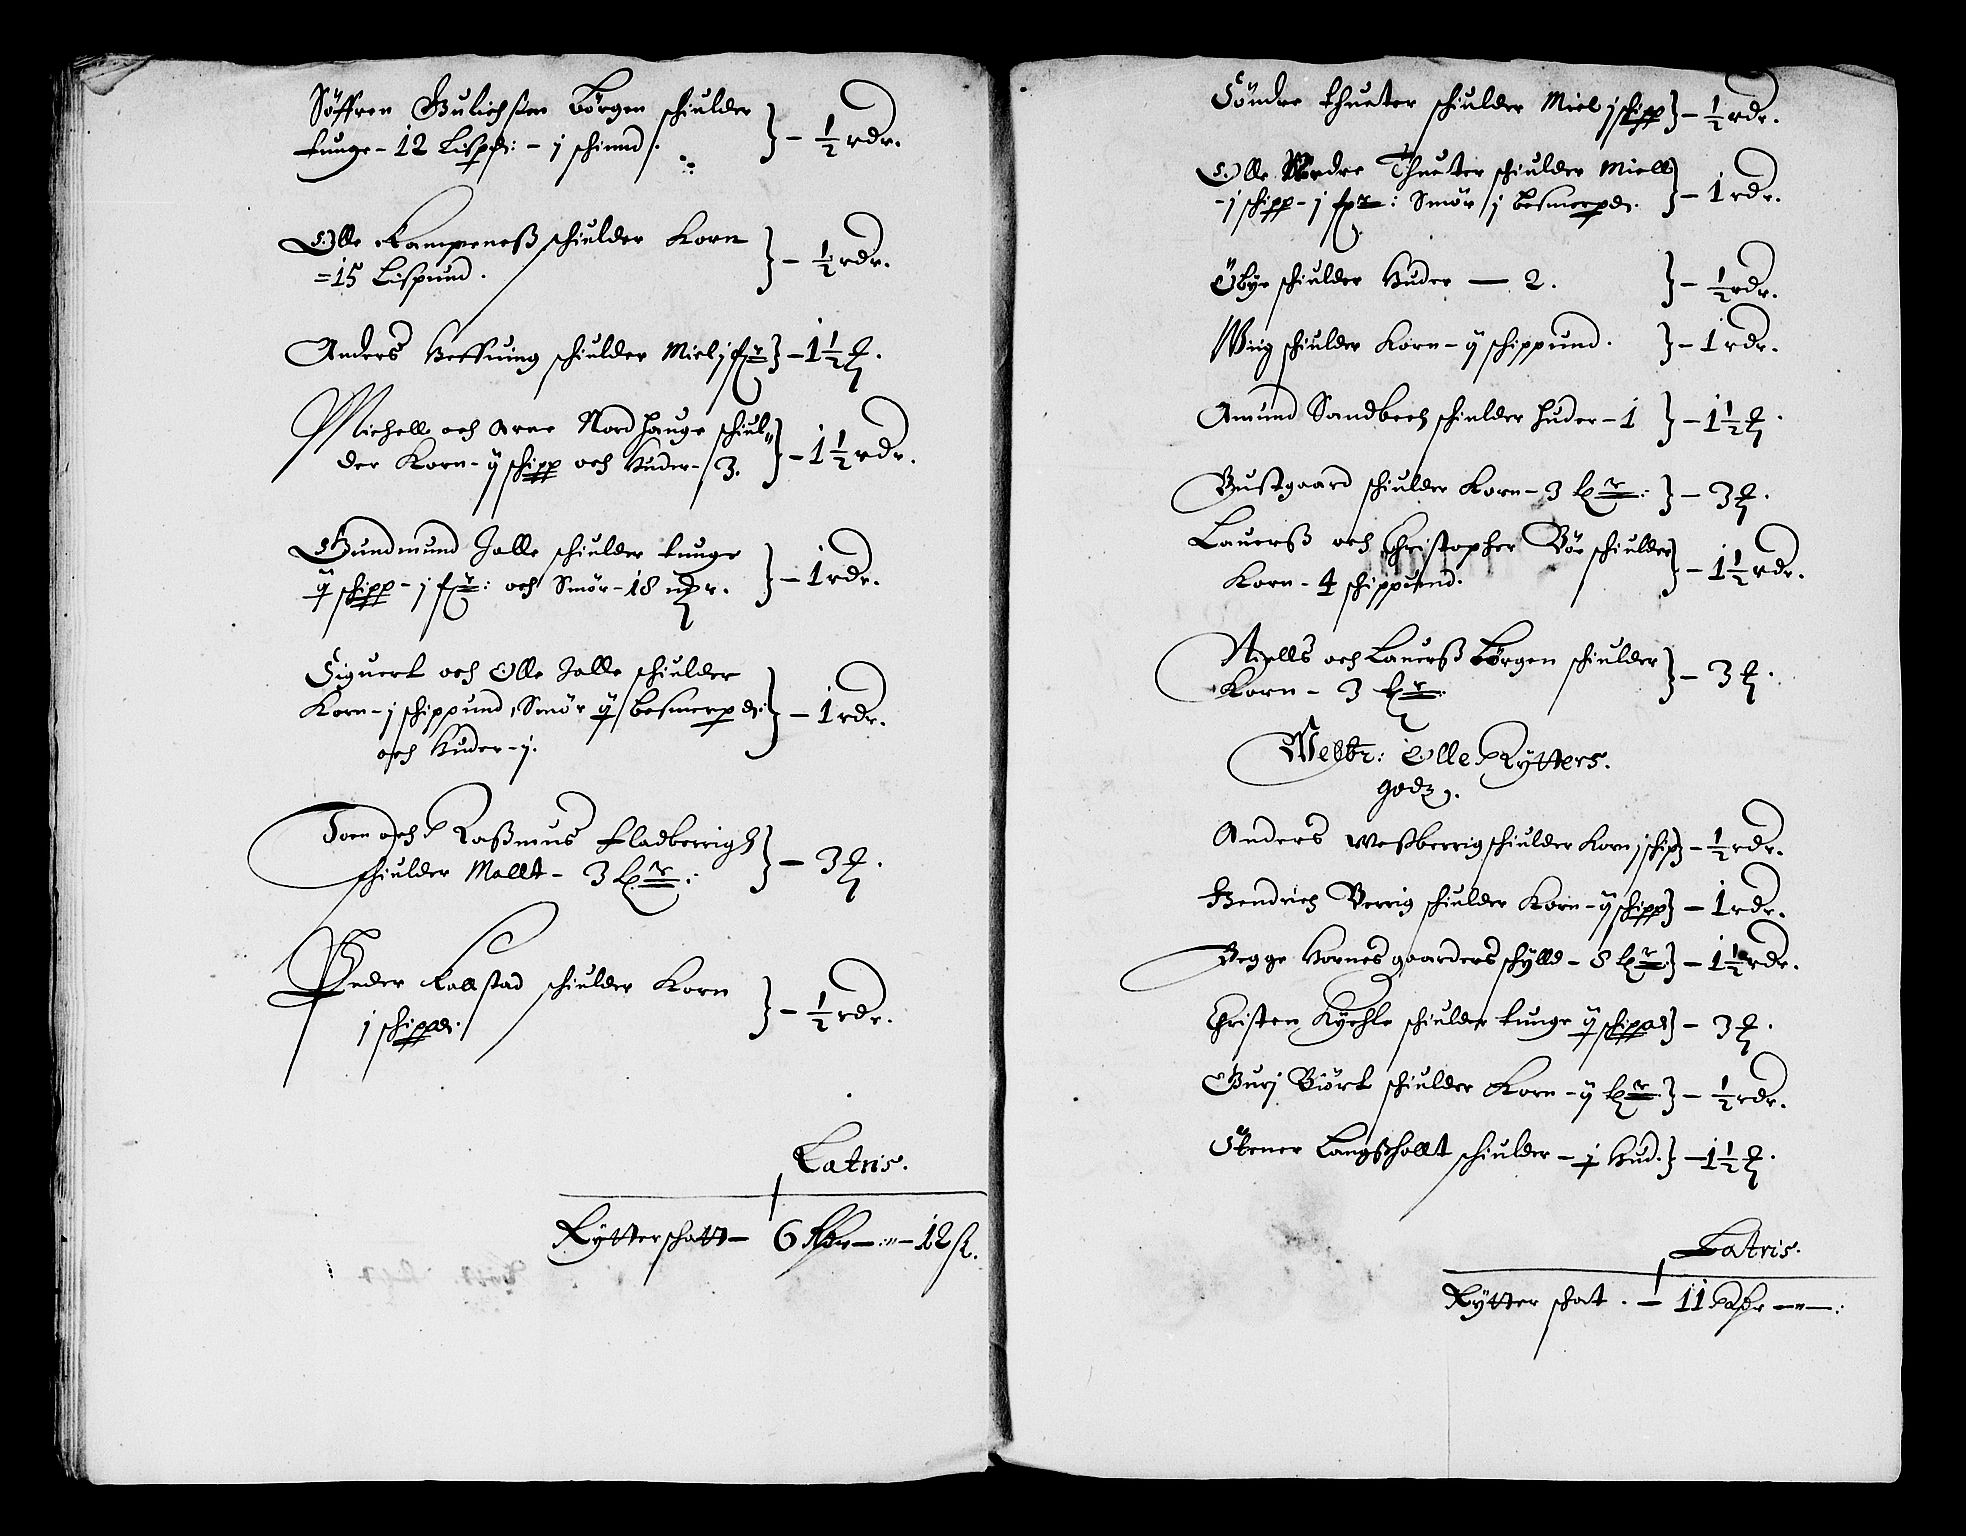 Söffren Gulichsen Börgen schiulder
tunge - 12 Lispd: - j schinnd /. } - ½ rdr.
Olle Kampeneß schiulder Korn
= 15 Lispund. } - ½ rdr.
Anders Heffning schiulder Miel j } - 1½
Michell och Arne Nordhauge schiul„
der Korn - ÿ schipp och Huder - 3. } - 1½ rdr.
Gundmund Jalle schiulder tunge
ÿ schipp - j och Smör - 18 } - 1 rdr.
Siguert och Olle Jalle schiulder
Korn - j schippund, Smör ÿ besmerpd: } - 1 rdr.
och Huder - j.
Joen och Raßmus Fladberrigh
schiulder Mallt - 3 } - 3
Peder Kallstad schiulder Korn
j schippd: } - ½ rdr.
Latris.
Rÿtterschatt - 6 Rdr - „ - 12 ß.
Söndre thueter schiulder Miel j schipp } - ½ rdr.
Olle Nordre Thueter schiulder Miell
- j schipp - j Smör j besmerpd. } - 1 rdr.
Öbye schiulder Huder - 2. } - ½ rdr.
Wiig schiulder Korn - ÿ schippund. } - 1 rdr.
Amund Sandbech schiulder huder - 1 } - 1½
Bustgaard schiulder Korn - 3 } - 3
Lauerß och Christopher Böe schiulder
Korn - 4 schippund. } - 1½ rdr.
Niells och Lauerß Börgen schiulder
Korn - 3 } - 3
Welbr: Olle Rÿtters.
godz.
Anders Weßberrig schiulder Korn j schip } - ½ rdr.
Hendrich Berrig schiulder Korn - ÿ schipp } - 1 rdr.
Begge Hornes gaarders schÿlld - 8 } - 1½ rdr.
Christen Kÿchle schiulder tunge ÿ schippd } - 3
Gurj Biört schiulder Korn - ÿ } - ½ rdr.
Stener Langßhollt schiulder - j Hud. } - 1½
Latris.
Rÿtter schat. - 11 Rdr - „ - :